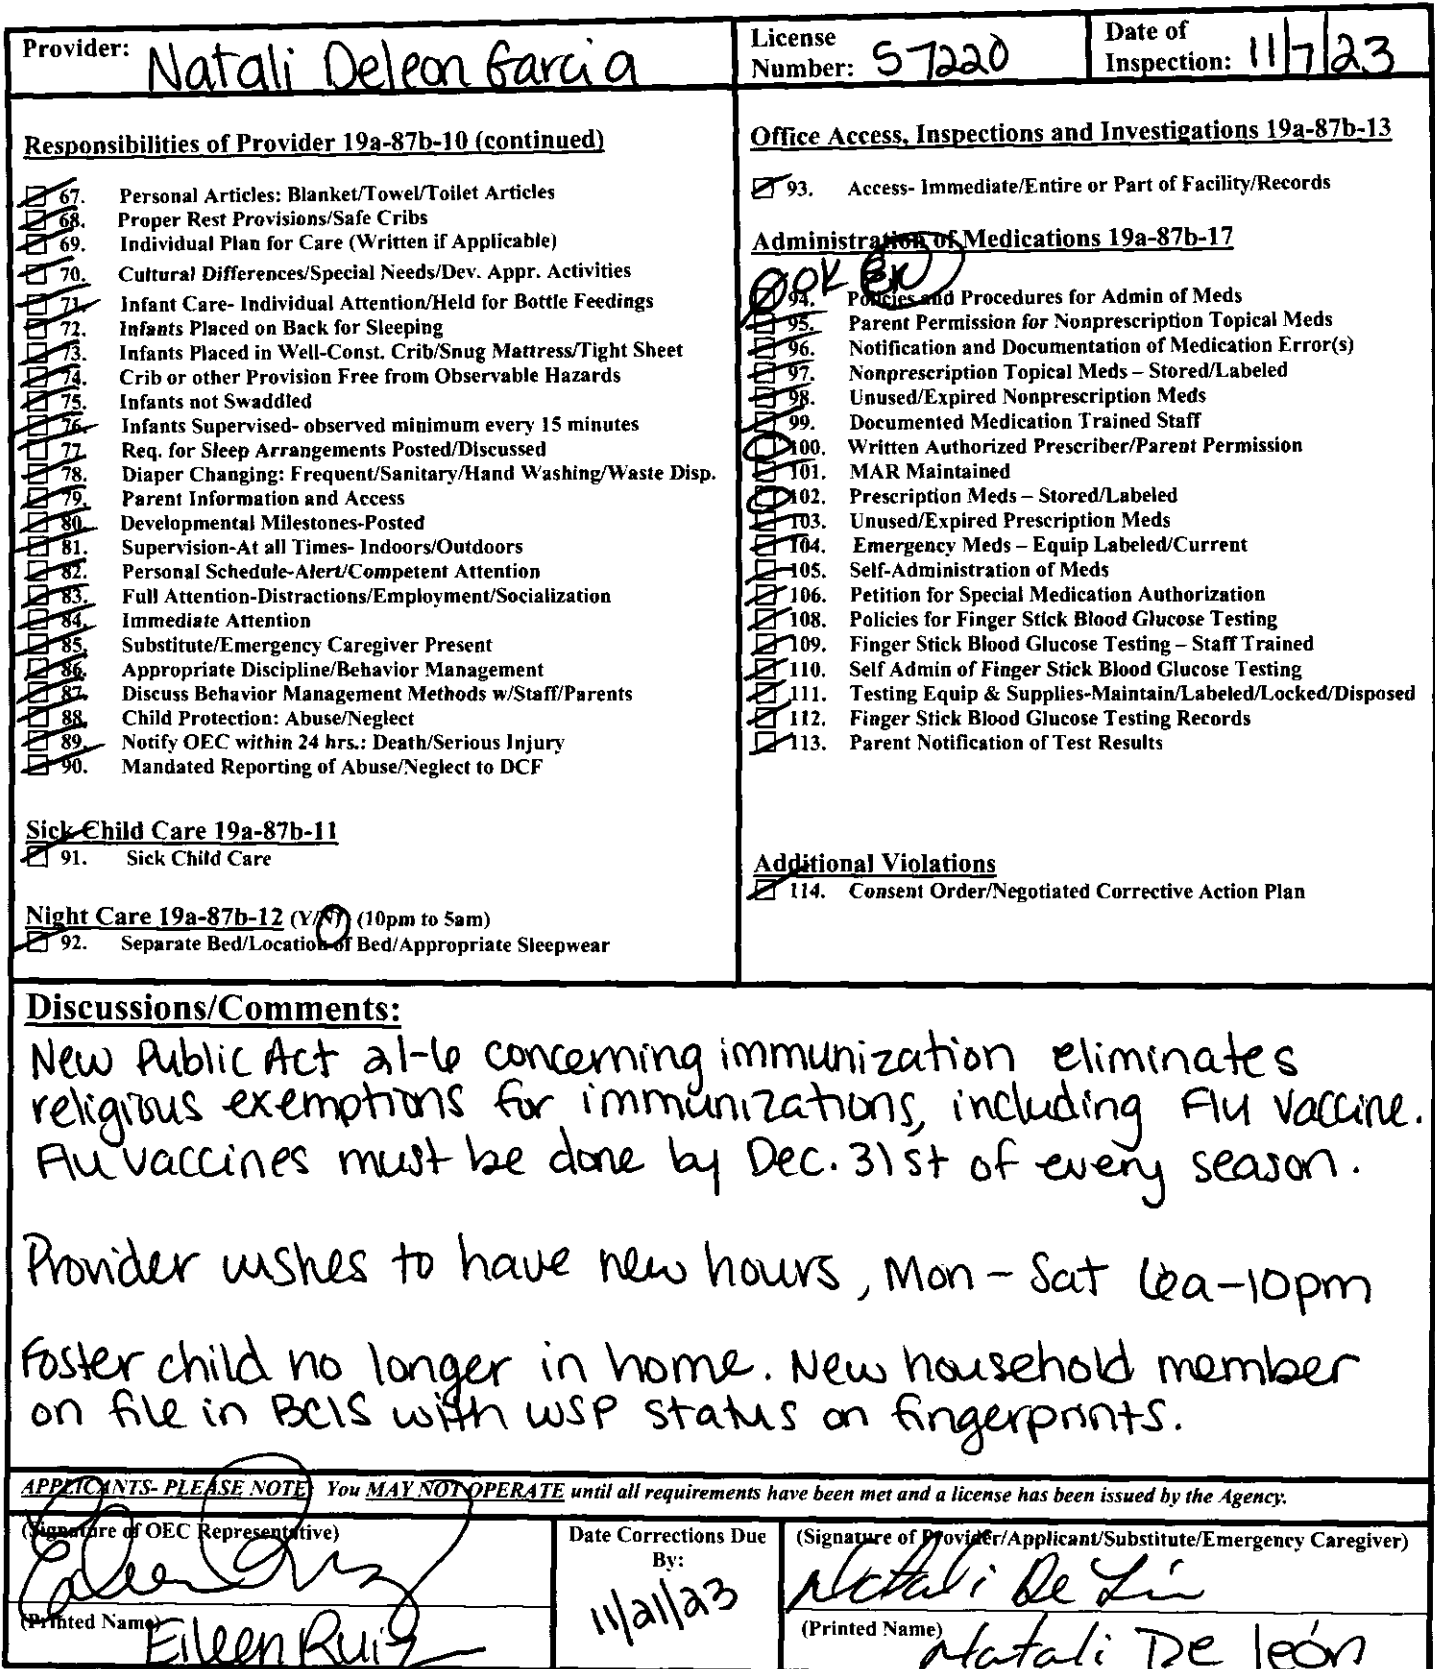 Provider: Natali Deleon Garcia
License Number: 57220
Date of Inspection: 11/7/23
Responsibilities of Provider 19a-87b-10 (continued)
67. Personal Articles: Blanket/Towel/Toilet Articles
68. Proper Rest Provisions/Safe Cribs
69. Individual Plan for Care (Written if Applicable)
70. Cultural Differences/Special Needs/Dev. Appr. Activities
71. Infant Care- Individual Attention/Held for Bottle Feedings
72. Infants Placed on Back for Sleeping
73. Infants Placed in Well-Const. Crib/Snug Mattress/Tight Sheet
74. Crib or other Provision Free from Observable Hazards
75. Infants not Swaddled
76. Infants Supervised- observed minimum every 15 minutes
77. Req. for Sleep Arrangements Posted/Discussed
78. Diaper Changing: Frequent/Sanitary/Hand Washing/Waste Disp.
79. Parent Information and Access
80. Developmental Milestones-Posted
81. Supervision-At all Times- Indoors/Outdoors
82. Personal Schedule-Alert/Competent Attention
83. Full Attention-Distractions/Employment/Socialization
84. Immediate Attention
85. Substitute/Emergency Caregiver Present
86. Appropriate Discipline/Behavior Management
87. Discuss Behavior Management Methods w/Staff/Parents
88. Child Protection: Abuse/Neglect
89. Notify OEC within 24 hrs.: Death/Serious Injury
90. Mandated Reporting of Abuse/Neglect to DCF
Sick Child Care 19a-87b-11
91. Sick Child Care
Night Care 19a-87b-12 (Y/N) (10pm to 5am)
92. Separate Bed/Location of Bed/Appropriate Sleepwear
Office Access, Inspections and Investigations 19a-87b-13
93. Access- Immediate/Entire or Part of Facility/Records
Administration of Medications 19a-87b-17
OK ER
94. Policies and Procedures for Admin of Meds
95. Parent Permission for Nonprescription Topical Meds
96. Notification and Documentation of Medication Error(s)
97. Nonprescription Topical Meds – Stored/Labeled
98. Unused/Expired Nonprescription Meds
99. Documented Medication Trained Staff
100. Written Authorized Prescriber/Parent Permission
101. MAR Maintained
102. Prescription Meds – Stored/Labeled
103. Unused/Expired Prescription Meds
104. Emergency Meds – Equip Labeled/Current
105. Self-Administration of Meds
106. Petition for Special Medication Authorization
108. Policies for Finger Stick Blood Glucose Testing
109. Finger Stick Blood Glucose Testing – Staff Trained
110. Self Admin of Finger Stick Blood Glucose Testing
111. Testing Equip & Supplies-Maintain/Labeled/Locked/Disposed
112. Finger Stick Blood Glucose Testing Records
113. Parent Notification of Test Results
Additional Violations
114. Consent Order/Negotiated Corrective Action Plan
Discussions/Comments:
New Public Act 21-6 concerning immunization eliminates
religious exemptions for immunizations, including Flu vaccine.
Flu vaccines must be done by Dec. 31st of every season.
Provider wishes to have new hours, Mon - Sat 6a-10pm
Foster child no longer in home. New household member
on file in BCIS with WSP status on fingerprints.
APPLICANTS- PLEASE NOTE: You MAY NOT OPERATE until all requirements have been met and a license has been issued by the Agency.
(Signature of OEC Representative)
Eileen Ruiz
(Printed Name)
Eileen Ruiz
Date Corrections Due
By:
11/21/23
(Signature of Provider/Applicant/Substitute/Emergency Caregiver)
Natali De
(Printed Name)
Natali De león